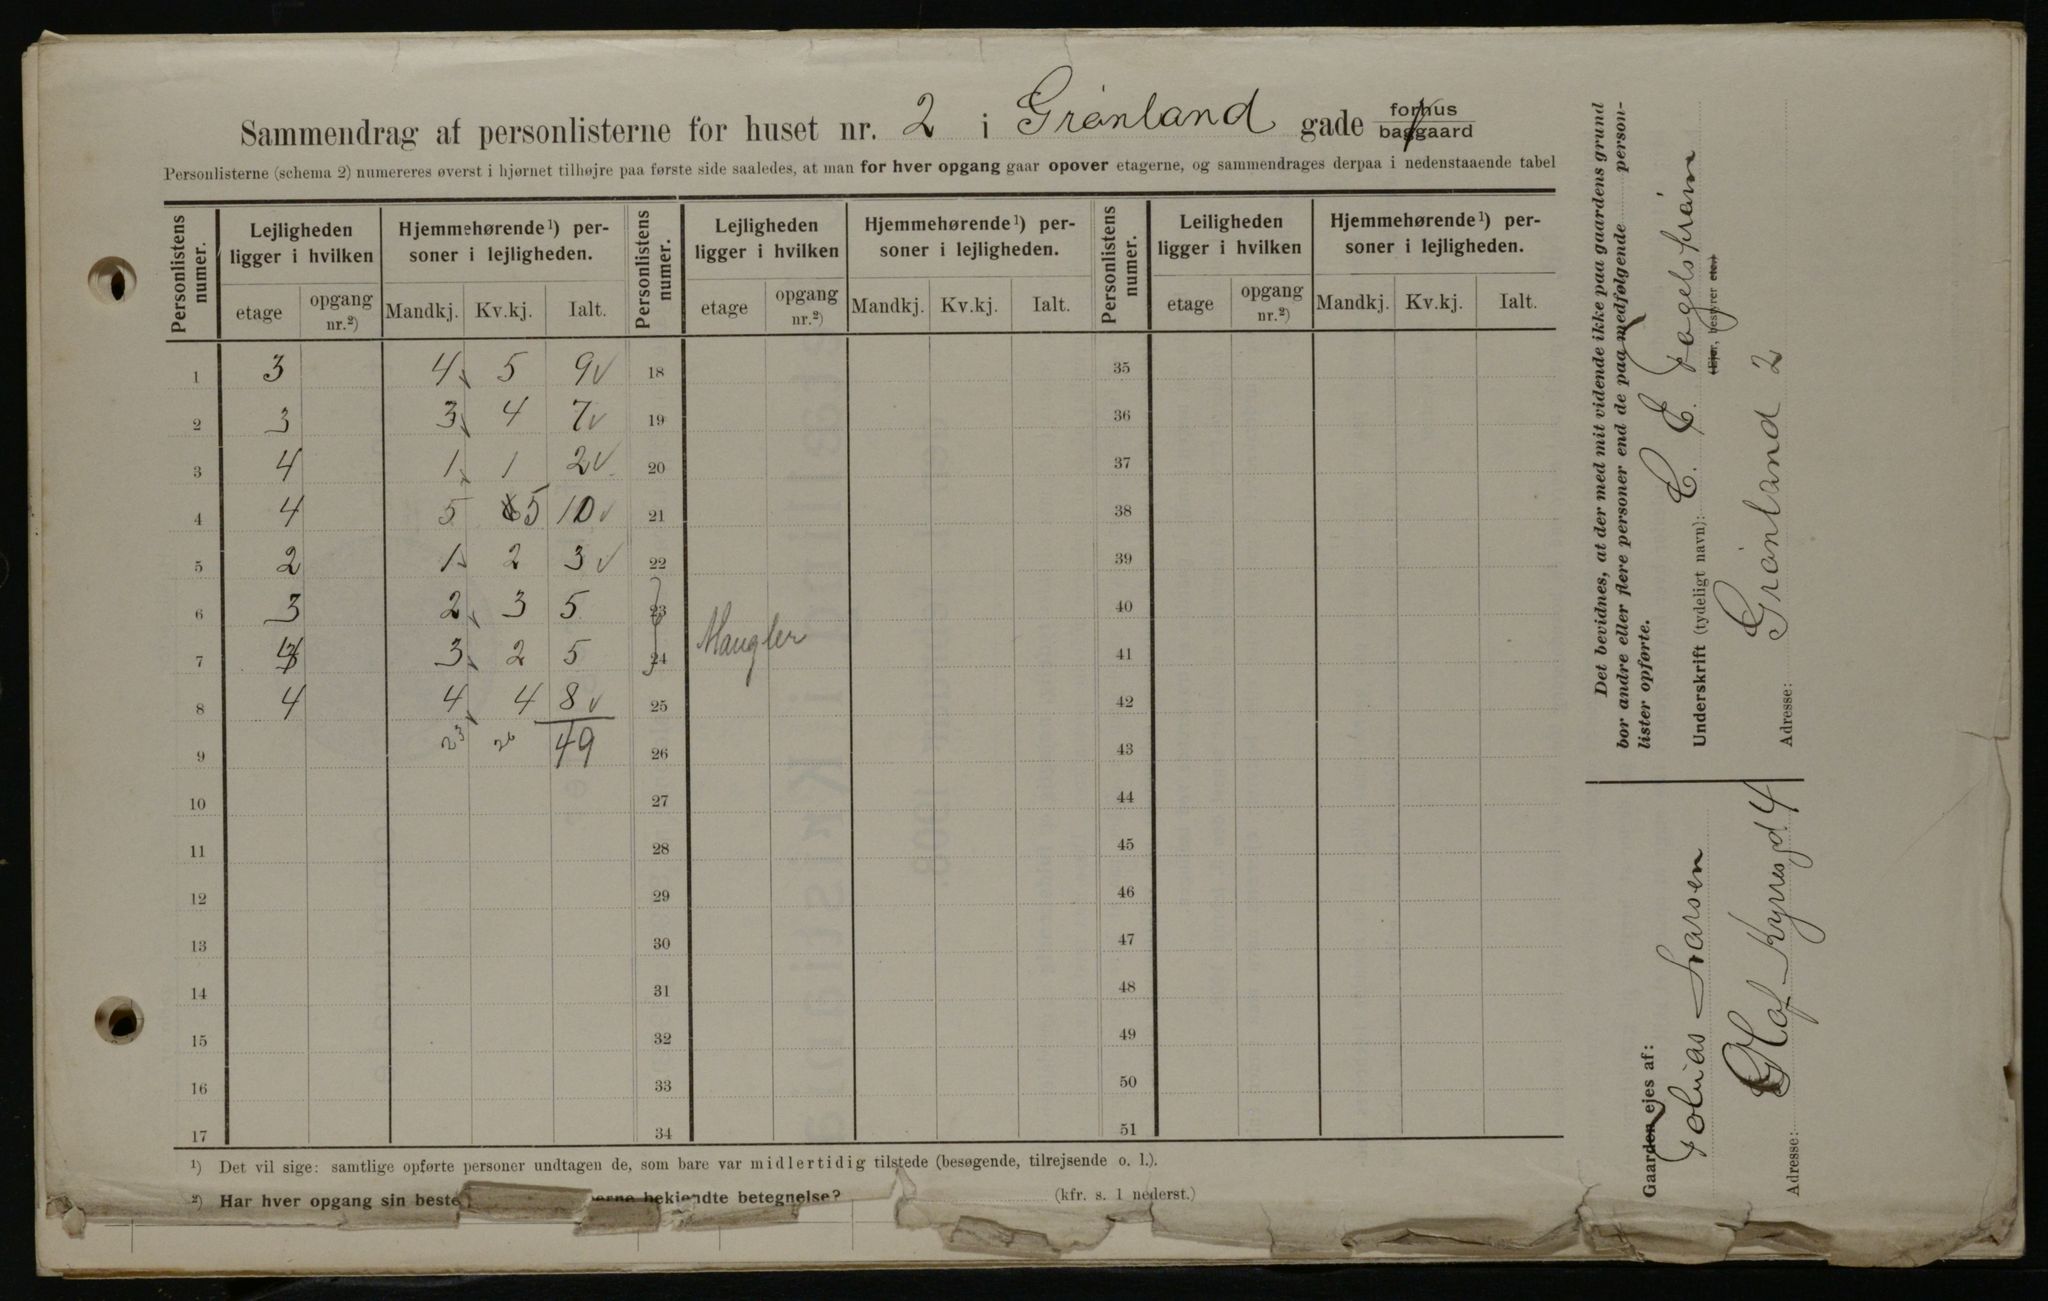 Sammendrag af personlisterne for huset nr. 2 i Grønland gade forhus
baggaard
Personlisterne (schema 2) numereres øverst i hjørnet tilhøjre paa første side saaledes, at man for hver opgang gaar opover etagerne, og sammendrages derpaa i nedenstaaende tabel
Personlistens numer. Lejligheden ligger i hvilken Hjemmehørende 1) personer i lejligheden. Personlistens numer. Lejligheden ligger i hvilken Hjemmehørende 1) personer i lejligheden. Personlistens numer. Leiligheden ligger i hvilken Hjemmehørende 1) personer i lejligheden.
etage opgang nr.2) Mandkj. Kv.kj. Ialt. etage opgang nr.2) Mandkj. Kv.kj. Ialt. etage opgang nr.2) Mandkj. Kv.kj. Ialt.
1 3 4 5 9 18 35
2 3 3 4 7 19 36
3 4 1 1 2 20 37
4 4 5 5 10 21 38
5 2 1 2 3 22 39
6 3 2 3 5 23 40
Mangler
7 3 2 5 24 41
8 4 4 4 8 25 42
9 23 26 49 26 43
10 27 44
11 28 45
12 29 46
13 30 47
14 31 48
15 32 49
16 33 50
17 34 51
1) Det vil sige: samtlige opførte personer undtagen de, som bare var midlertidig tilstede (besøgende, tilrejsende o. l.).
2) Har hver opgang sin beste erne bekjendte betegnelse? (kfr. s. 1 nederst.)
Det bevidnes, at der med mit vidende ikke paa gaardens grund
bor andre eller flere personer end de paa medfølgende person-
lister opførte.
Underskrift (tydeligt navn): C. E. Fagelstrøm
(Ejer, bestyrer etc.)
Adresse: Grønland 2
Gaarden ejes af:
Tobias Larsen
Adresse: Olaf Kyrresgd 4